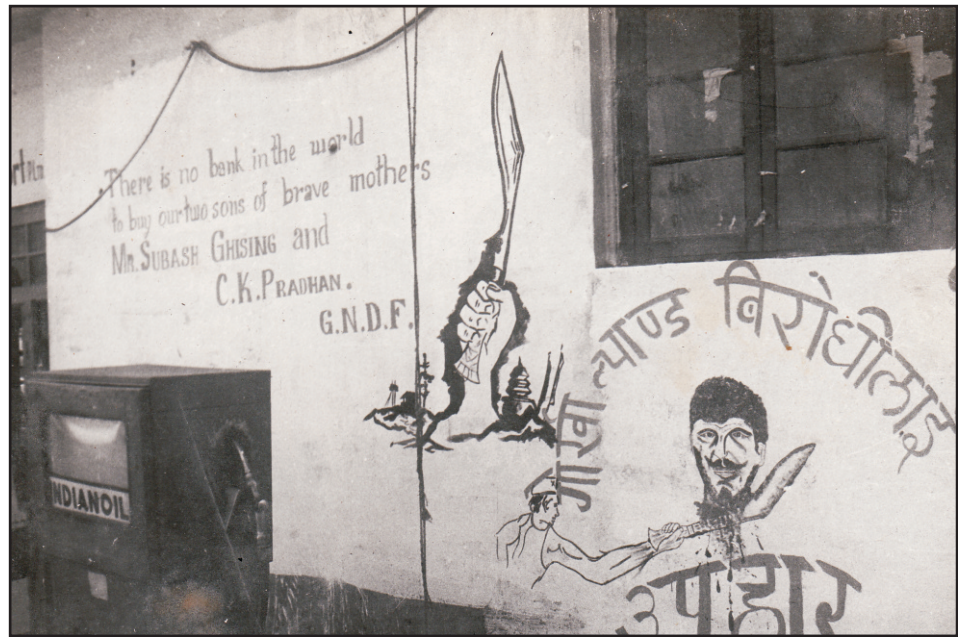 There is no bank in the world
to buy our two sons of brave mothers
MR. SUBASH GHISING and
C.K. PRADHAN.
G.N.D.F.
NDIANOIL
गोर्खा ल्याण्ड बिरोधीलाइ
उपहार